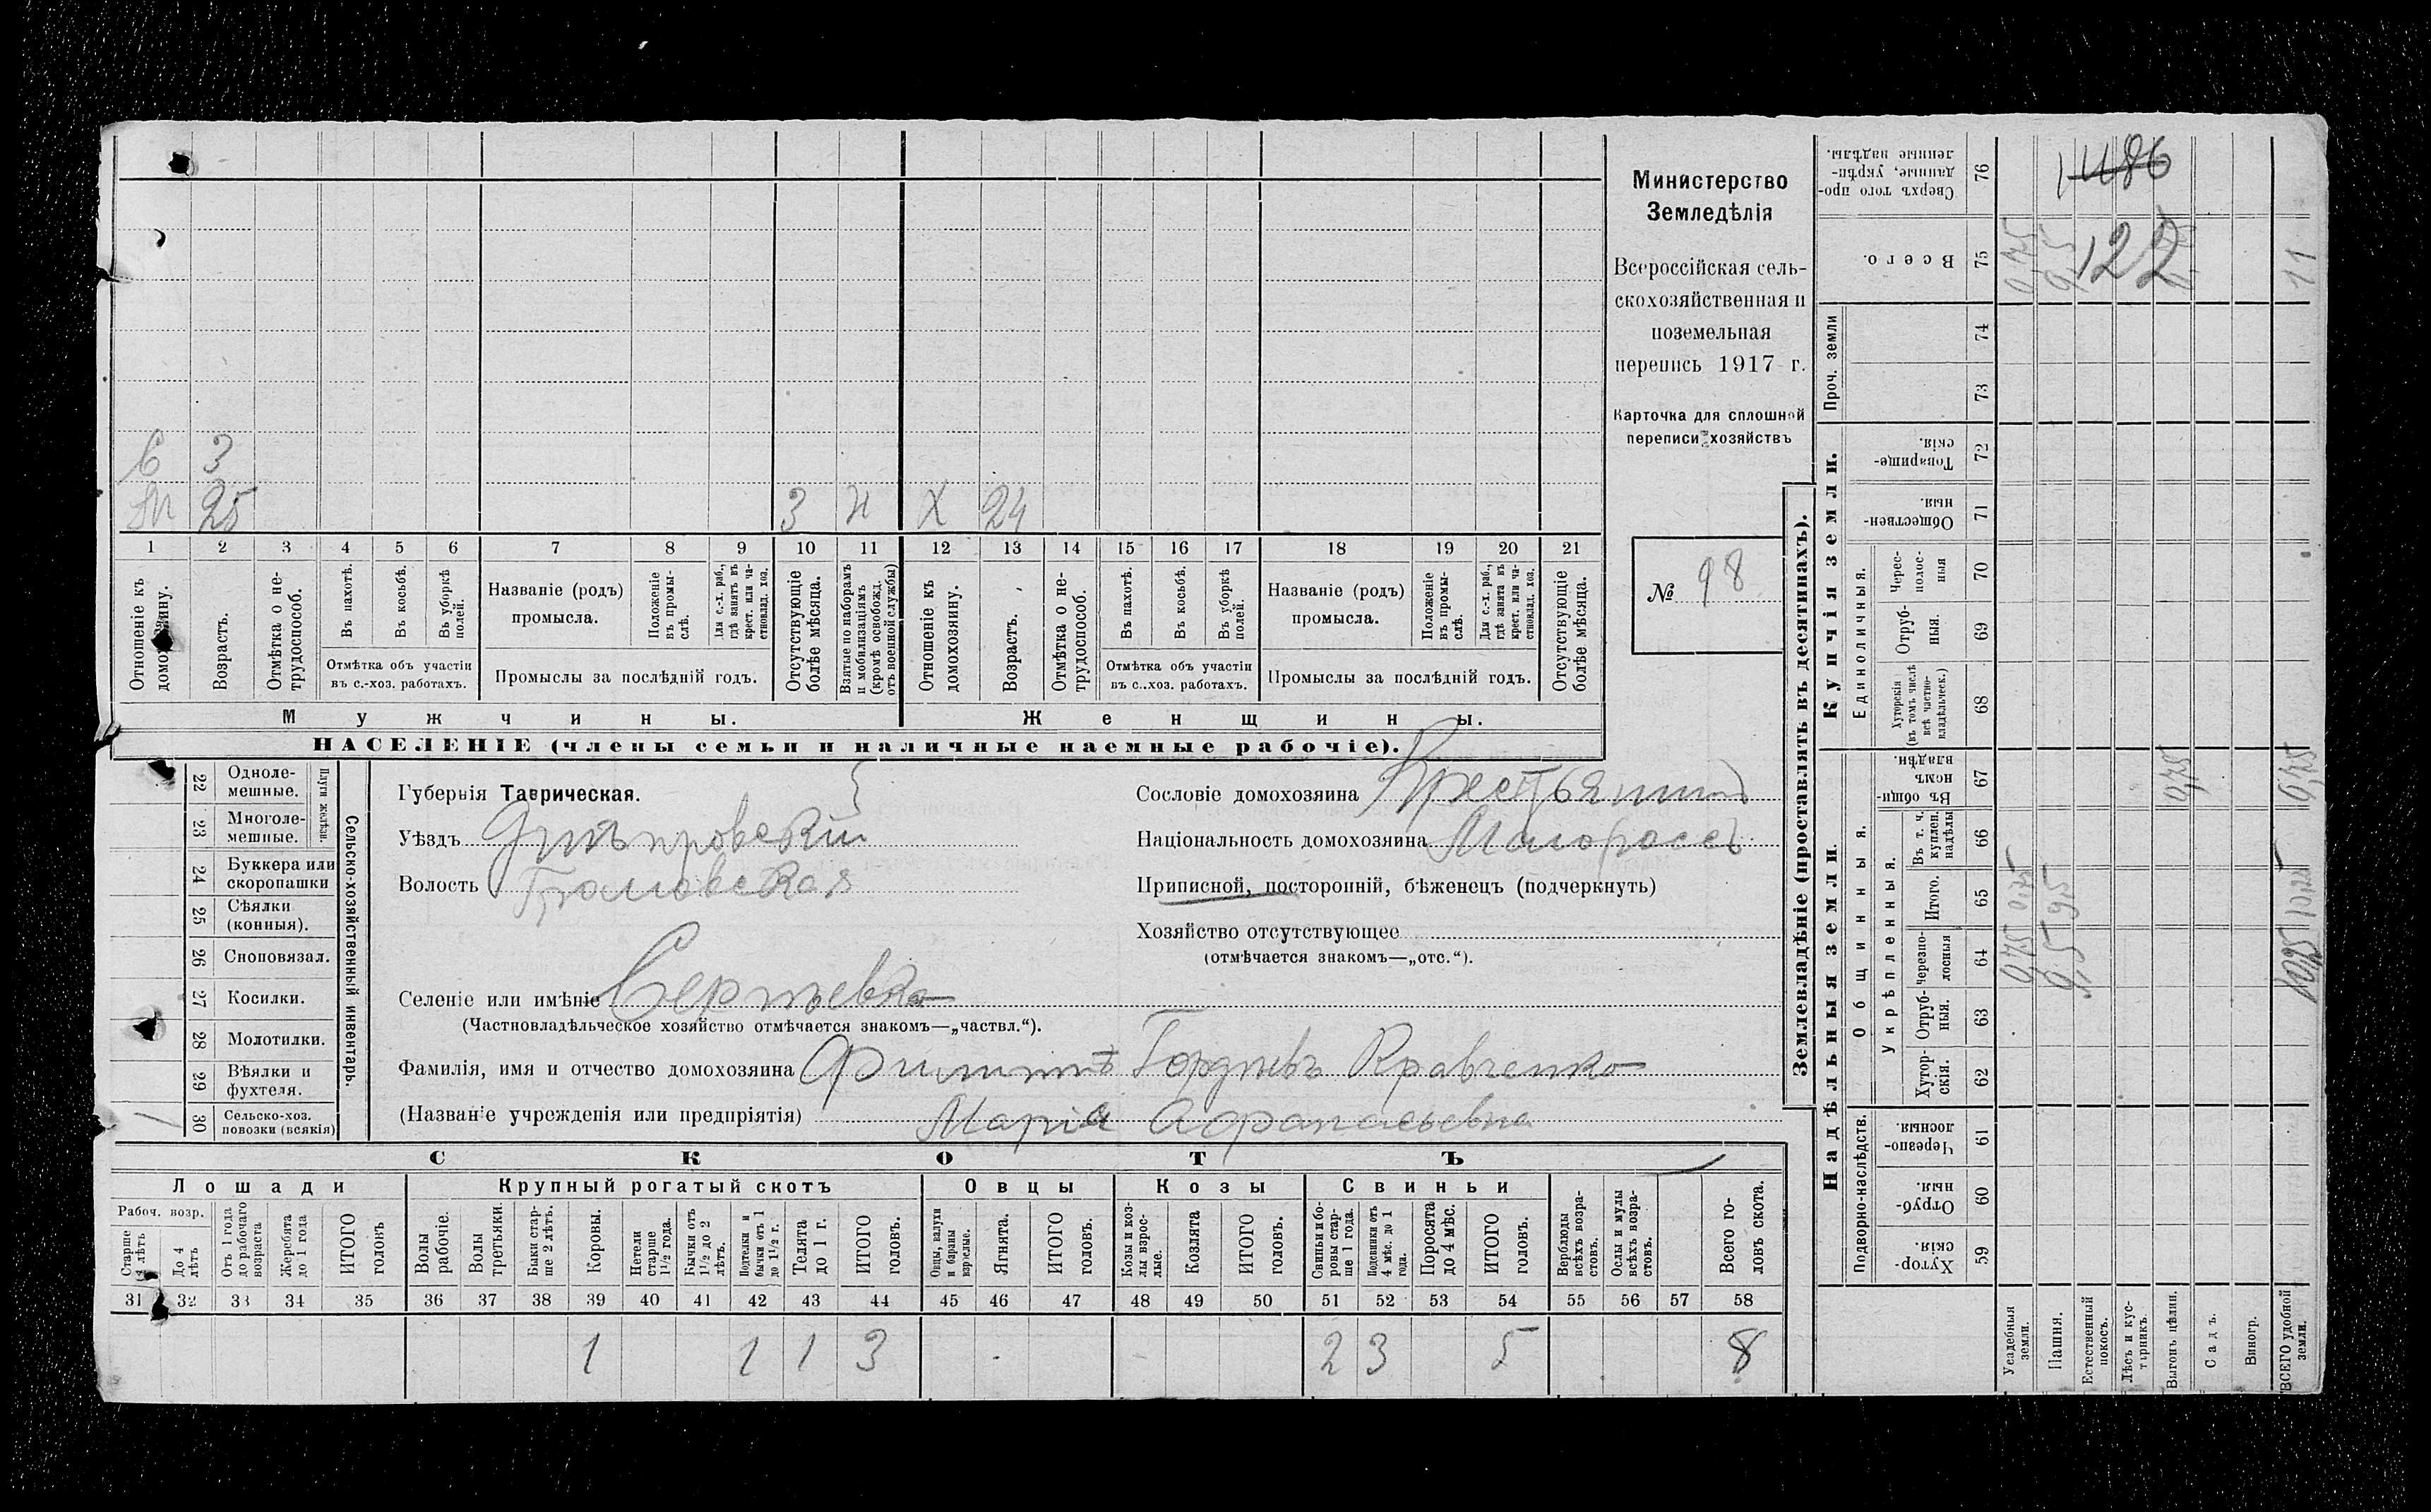 Министерство
Земледѣлія
Всероссійская сель-
скохозяйственная и
поземельная
перепись 1917 г.
Карточка для сплошной
переписи хозяйствъ
№ 98
С 3
25 3 Н Х 24
1 2 3 4 5 6 7 8 9 10 11 12 13 14 15 16 17 18 19 20 21
Отношеніе къ домохозяину.
Возрастъ.
Отмѣтка о не-трудоспособ.
Въ пахотѣ.
Въ косьбѣ.
Въ уборкѣ полей.
Отмѣтка объ участіи
въ с.-хоз. работахъ.
Названіе (родъ)
промысла.
Положеніе въ промы-слѣ.
Для с.-х. раб., гдѣ занятъ въ крест. или ча-стновлад. хоз.
Промыслы за послѣдній годъ.
Отсутствующіе болѣе мѣсяца.
Взятые по наборамъ и мобилизаціямъ (кромѣ освобожд. отъ военной службы)
Отношеніе къ домохозяину.
Возрастъ.
Отмѣтка о не-трудоспособ.
Въ пахотѣ.
Въ косьбѣ.
Въ уборкѣ полей.
Отмѣтка объ участіи
въ с.-хоз. работахъ.
Названіе (родъ)
промысла.
Положеніе въ промы-слѣ.
Для с.-х. раб., гдѣ занята въ крест. или ча-стновлад. хоз.
Промыслы за послѣдній годъ.
Отсутствующіе болѣе мѣсяца.
Мужчины. Женщины.
НАСЕЛЕНІЕ (члены семьи и наличные наемные рабочіе).
Сельско-хозяйственный инвентарь.
Плуги желѣзн.
22 Одноле-
мешные.
23 Многоле-
мешные.
24 Буккера или
скоропашки
25 Сѣялки
(конныя).
26 Сноповязал.
27 Косилки.
28 Молотилки.
29 Вѣялки и
фухтеля.
30 Сельско-хоз.
повозки (всякія)
Губернія Таврическая.
Уѣздъ Днѣпровскій
Волость
Селеніе или имѣніе Сергѣевка
(Частновладѣльческое хозяйство отмѣчается знакомъ—„частвл.“).
Фамилія, имя и отчество домохозяина Филиппъ Гордѣевъ Кравченко
(Названіе учрежденія или предпріятія) Марія Афанасьевна
Сословіе домохозяина Крестьянинъ
Національность домохозяина Малороссъ
Приписной, посторонній, бѣженецъ (подчеркнуть)
Хозяйство отсутствующее
(отмѣчается знакомъ—„отс.“).
СКОТЪ
Лошади Крупный рогатый скотъ Овцы Козы Свиньи
Рабоч. возр.
Старше 4 лѣтъ
До 4 лѣтъ
Отъ 1 года до рабочаго возраста
Жеребята до 1 года
ИТОГО головъ
Волы рабочіе.
Волы третьяки.
Быки стар-ше 2 лѣтъ.
Коровы.
Нетели старше 1½ года.
Бычки отъ 1½ до 2 лѣтъ.
Подтелки и бычки отъ 1 до 1½ г.
Телята до 1 г.
ИТОГО головъ.
Овцы, валухи и бараны взрослые.
Ягнята.
ИТОГО головъ.
Козы и коз-лы взрос-лые.
Козлята
ИТОГО головъ.
Свиньи и бо-ровы стар-ше 1 года.
Подсвинки отъ 4 мѣс. до 1 года.
Поросята до 4 мѣс.
ИТОГО головъ.
Верблюды всѣхъ возра-стовъ.
Ослы и мулы всѣхъ возра-стовъ.
Всего го-ловъ скота.
31 32 33 34 35 36 37 38 39 40 41 42 43 44 45 46 47 48 49 50 51 52 53 54 55 56 57 58
1 1 1 3 2 3 5 8
Землевладѣніе (проставлять въ десятинахъ).
Надѣльныя земли. Купчія земли. Проч. земли
Подворно-наслѣдств. Общинныя. Единоличныя.
Укрѣпленныя.
Хутор-скія. 59
Отруб-ныя. 60
Черезпо-лосныя. 61
Хутор-скія. 62
Отруб-ныя. 63
Черезпо-лосныя 64
Итого. 65
Въ т. ч. куплен. надѣлы 66
Въ общи-номъ владѣн. 67
Хуторскія (въ томъ числѣ всѣ частно-владѣльческ.) 68
Отруб-ныя. 69
Черес-полос-ныя 70
Обществен-ныя. 71
Товарище-скія. 72
73
74
Всего. 75
Сверхъ того про-данные, укрѣп-ленные надѣлы. 76
Усадебныя земли. 0,75 0,75 0,75
Пашня. 9,5 9,5 9,5
Естественный покосъ.
Лѣсъ и кус-тарникъ.
Выгонъ цѣлин. 0,75
Садъ.
Виногр.
ВСЕГО удобной земли. 10,25 10,25 0,75 11
1486
122